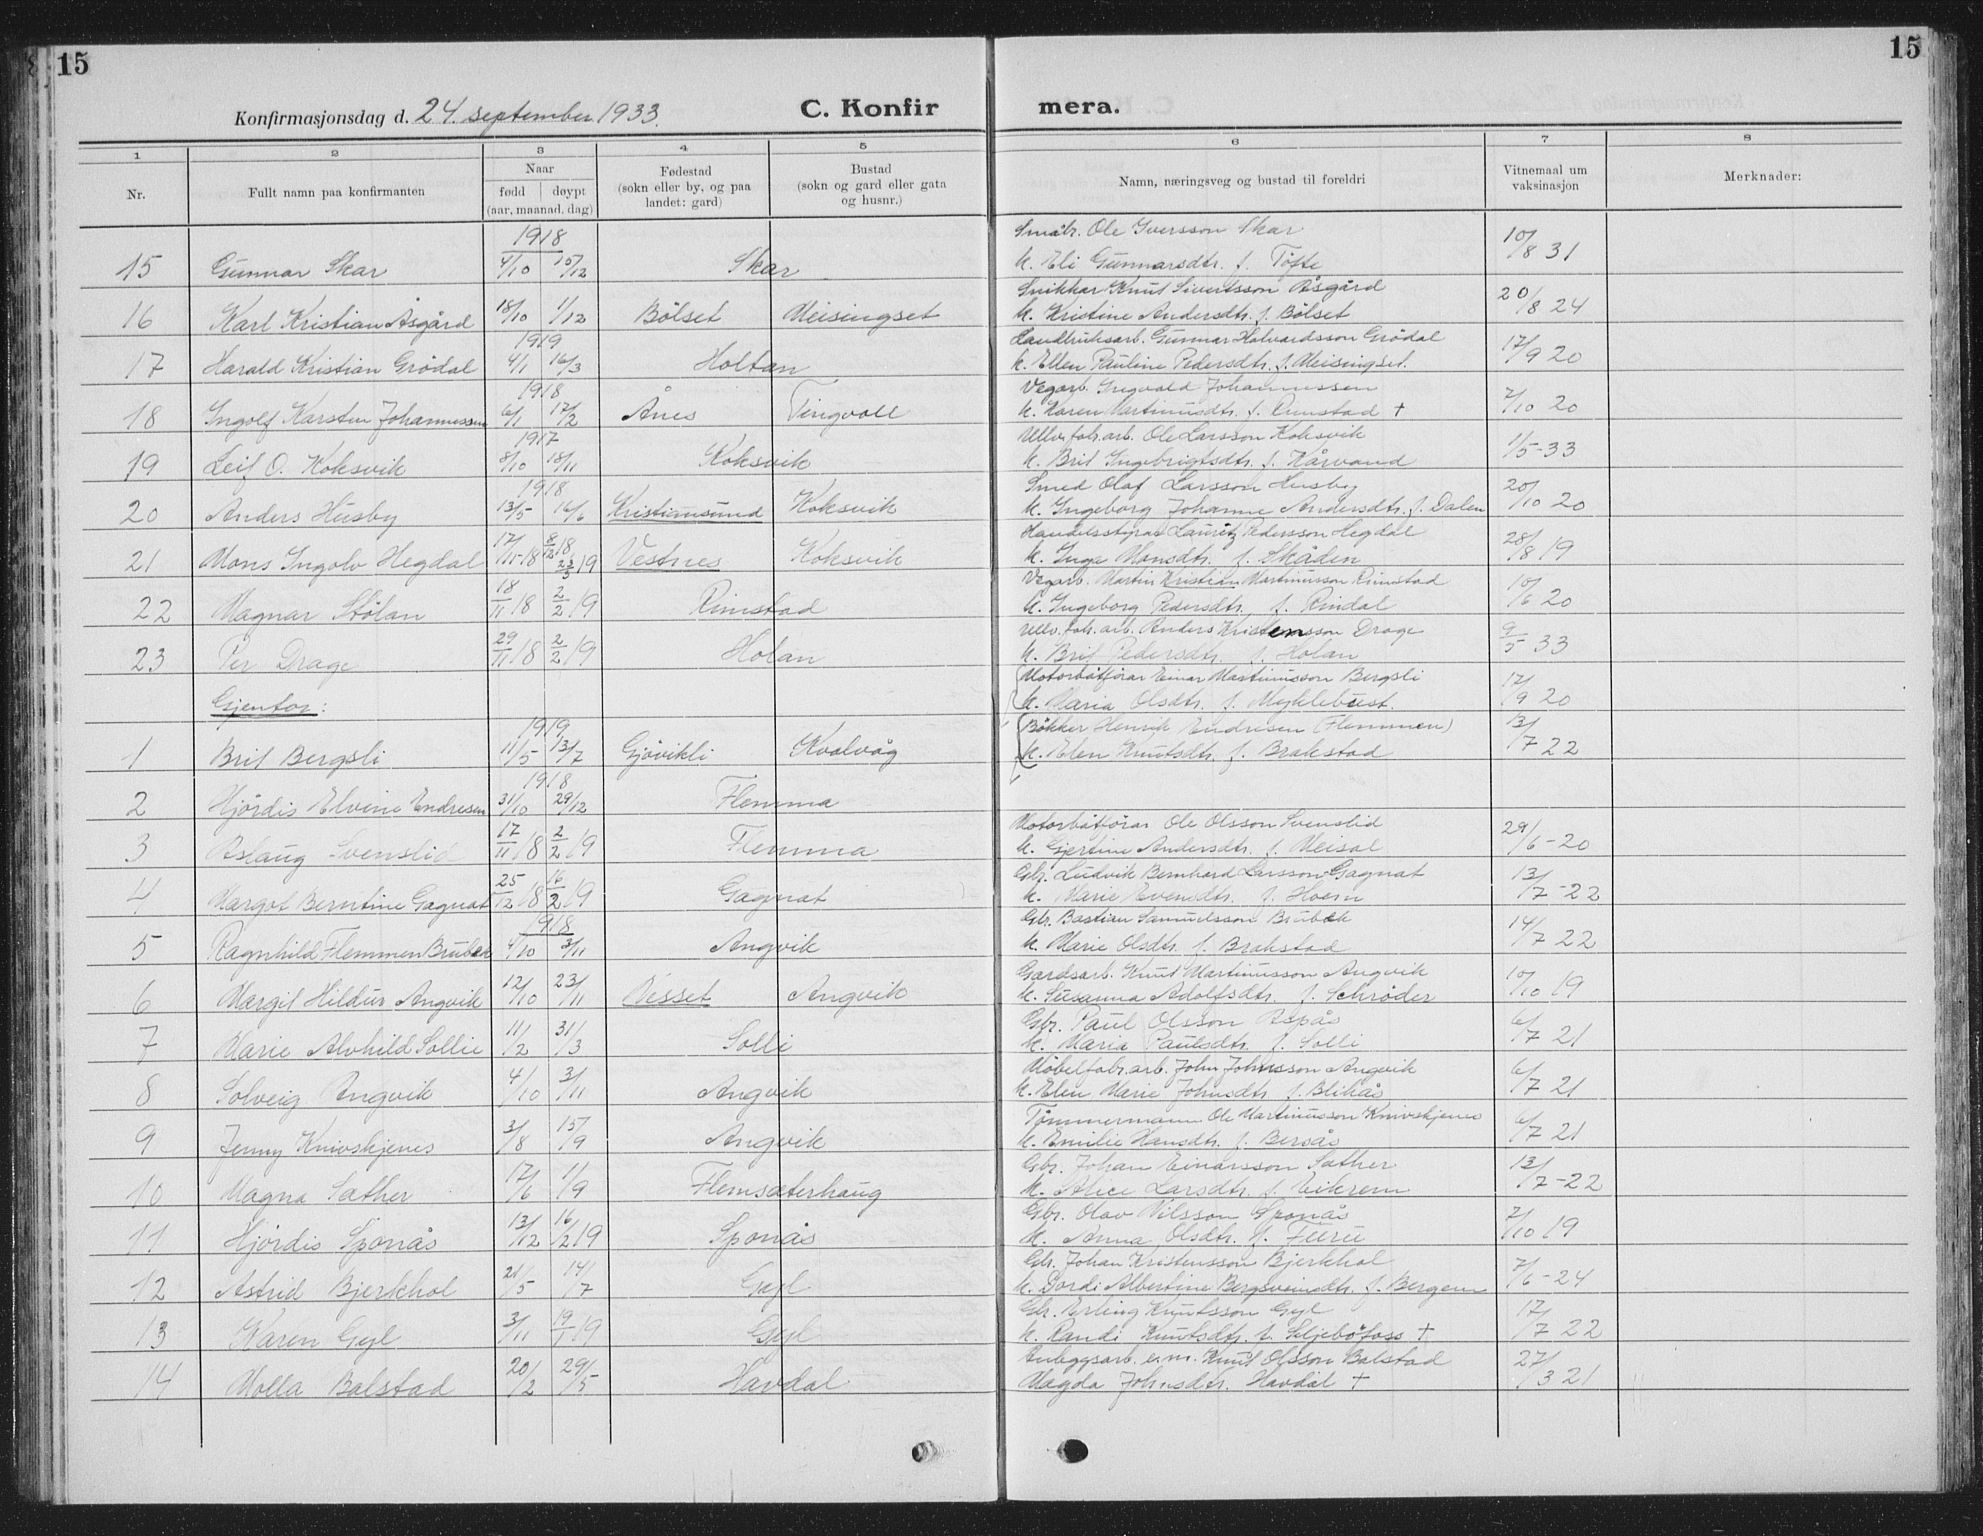 15
15
Konfirmasjonsdag d. 24. september 1933.
C. Konfir
mera.
1 2 3 4 5 6 7 8
Nr.
Fullt namn paa konfirmanten
Naar
fødd døypt
(aar, maanad, dag)
Fødestad
(sokn eller by, og paa
landet: gard)
Bustad
(sokn og gard eller gata
og husnr.)
Namn, næringsveg og bustad til foreldri
Vitnemaal um
vaksinasjon
Merknader:
1918
Småbr. Ole Iversson Skar
15 Gunnar Skar 4/10 10/12 Skar k. Eli Gunnarsdtr. f. Töfte 10/8 31
Snikkar Knut Sivertsson Åsgård
16 Karl Kristian Åsgård 18/10 1/12 Bölset Meisingset k. Kristine Andersdtr. f. Bölset 20/8 24
1919
Landbruksarb. Gunnar Halvardsson Grödal
17 Harald Kristian Grödal 4/1 16/3 Holtan k. Ellen Pauline Pedersdtr. f. Meisingset. 17/9 20
1918
Vegarb. Ingvald Johannessen
18 Ingolf Karsten Johannessen 6/1 17/2 Ånes Tingvoll k. Karen Martinusdtr. f. Rimstad + 7/10 20
1917
Ullv.fabr.arb. Ole Larsson Koksvik
19 Leif O. Koksvik 8/10 18/11 Koksvik k. Brit Ingebrigtsdtr. f. Kårvand 1/5-33
1918
Smed Olaf Larsson Husby
20 Anders Husby 13/5 16/6 Kristiansund Koksvik k. Ingeborg Johanne Andersdtr. f. Dalen 20/10 20
Handelsstyrar Lauritz Pedersson Hegdal
21 Mons Ingolv Hegdal 17/11-18 8/12 18 23/3 19 Vestnes Koksvik k. Inga Monsdtr. f. Skåden 28/8 19
Vegarb. Martin Kristian Martinusson Rimstad
22 Magnar Stölan 18/11 18 2/2 19 Rimstad k. Ingeborg Pedersdtr. f. Rindal 10/6 20
Ullv. fab. arb. Anders Kristensson Drage
23 Per Drage 29/11 18 2/2 19 Holan k. Brit Pedersdtr. f. Holan 9/5 33
Motorbåtförar Einar Martinusson Bergsli
Gjentor: k. Maria Olsdtr. f. Myklebust. 17/9 20
1919
Bökker Henrik Endresen (Flemmen)
1 Brit Bergsli 11/5 13/7 Gjövikli Kvalvåg k. Elen Knutsdtr. f. Brakstad 13/7 22
1918
2 Hjördis Elvine Endresen 31/10 29/12 Flemma
Motorbåtförar Ole Olsson Svenslid
3 Aslaug Svenslid 17/11 18 2/2 19 Flemma k. Gjertine Andersdtr. f. Meisal 29/6-20
Gbr. Ludvik Bernhard Larsson Gagnat
4 Margot Berntine Gagnat 25/12 18 16/2 19 Gagnat k. Marie Evensdtr. f. Hoem 13/7-22
1918
Gbr. Bastian Samuelsson Brubæk
5 Ragnhild Flemmen Brubæk 4/10 3/11 Angvik k. Marie Olsdtr. f. Brakstad 14/7 22
Gardsarb. Knut Martinusson Angvik
6 Margit Hildur Angvik 12/10 23/11 Nesset Angvik k. Susanna Adolfsdtr. f. Schröder 10/10 19
Gbr. Paul Olsson Aspås
7 Marie Alvhild Sollie 11/2 31/3 Solli k. Maria Paulsdtr. f. Solli 6/7 21
Möbelfabr.arb. John Johnsson Angvik
8 Solveig Angvik 4/10 3/11 Angvik k. Elen Marie Johnsdtr. f. Blikås 6/7 21
Tömmermann Ole Martinusson Knivskjenes
9 Jenny Knivskjenes 3/8 15/9 Angvik k. Emilie Hansdtr. f. Bersås 6/7 21
Gbr. Johan Einarsson Sæther
10 Magna Sæther 17/6 1/9 Flemsæterhaug k. Alice Larsdtr. f. Eikrem 13/7-22
Gbr. Olav Nilsson Sponås
11 Hjördis Sponås 13/12 16/2 19 Sponås k. Anna Olsdtr. f. Furu 7/10 19
Gbr. Johan Kristensson Bjerkhol
12 Astrid Bjerkhol 21/5 14/7 Gyl k. Dordi Albertine Bergsveinsdtr. f. Bergem 7/6-24
Gbr. Erling Knutsson Gyl
13 Karen Gyl 3/11 19/1 19 Gyl k. Randi Knutsdtr. f. Siljebøfoss + 17/7 22
Anleggsarb. e.m. Knut Olsson Balstad
14 Molla Balstad 20/2 29/5 Havdal Magda Johnsdtr. Havdal + 27/3 21